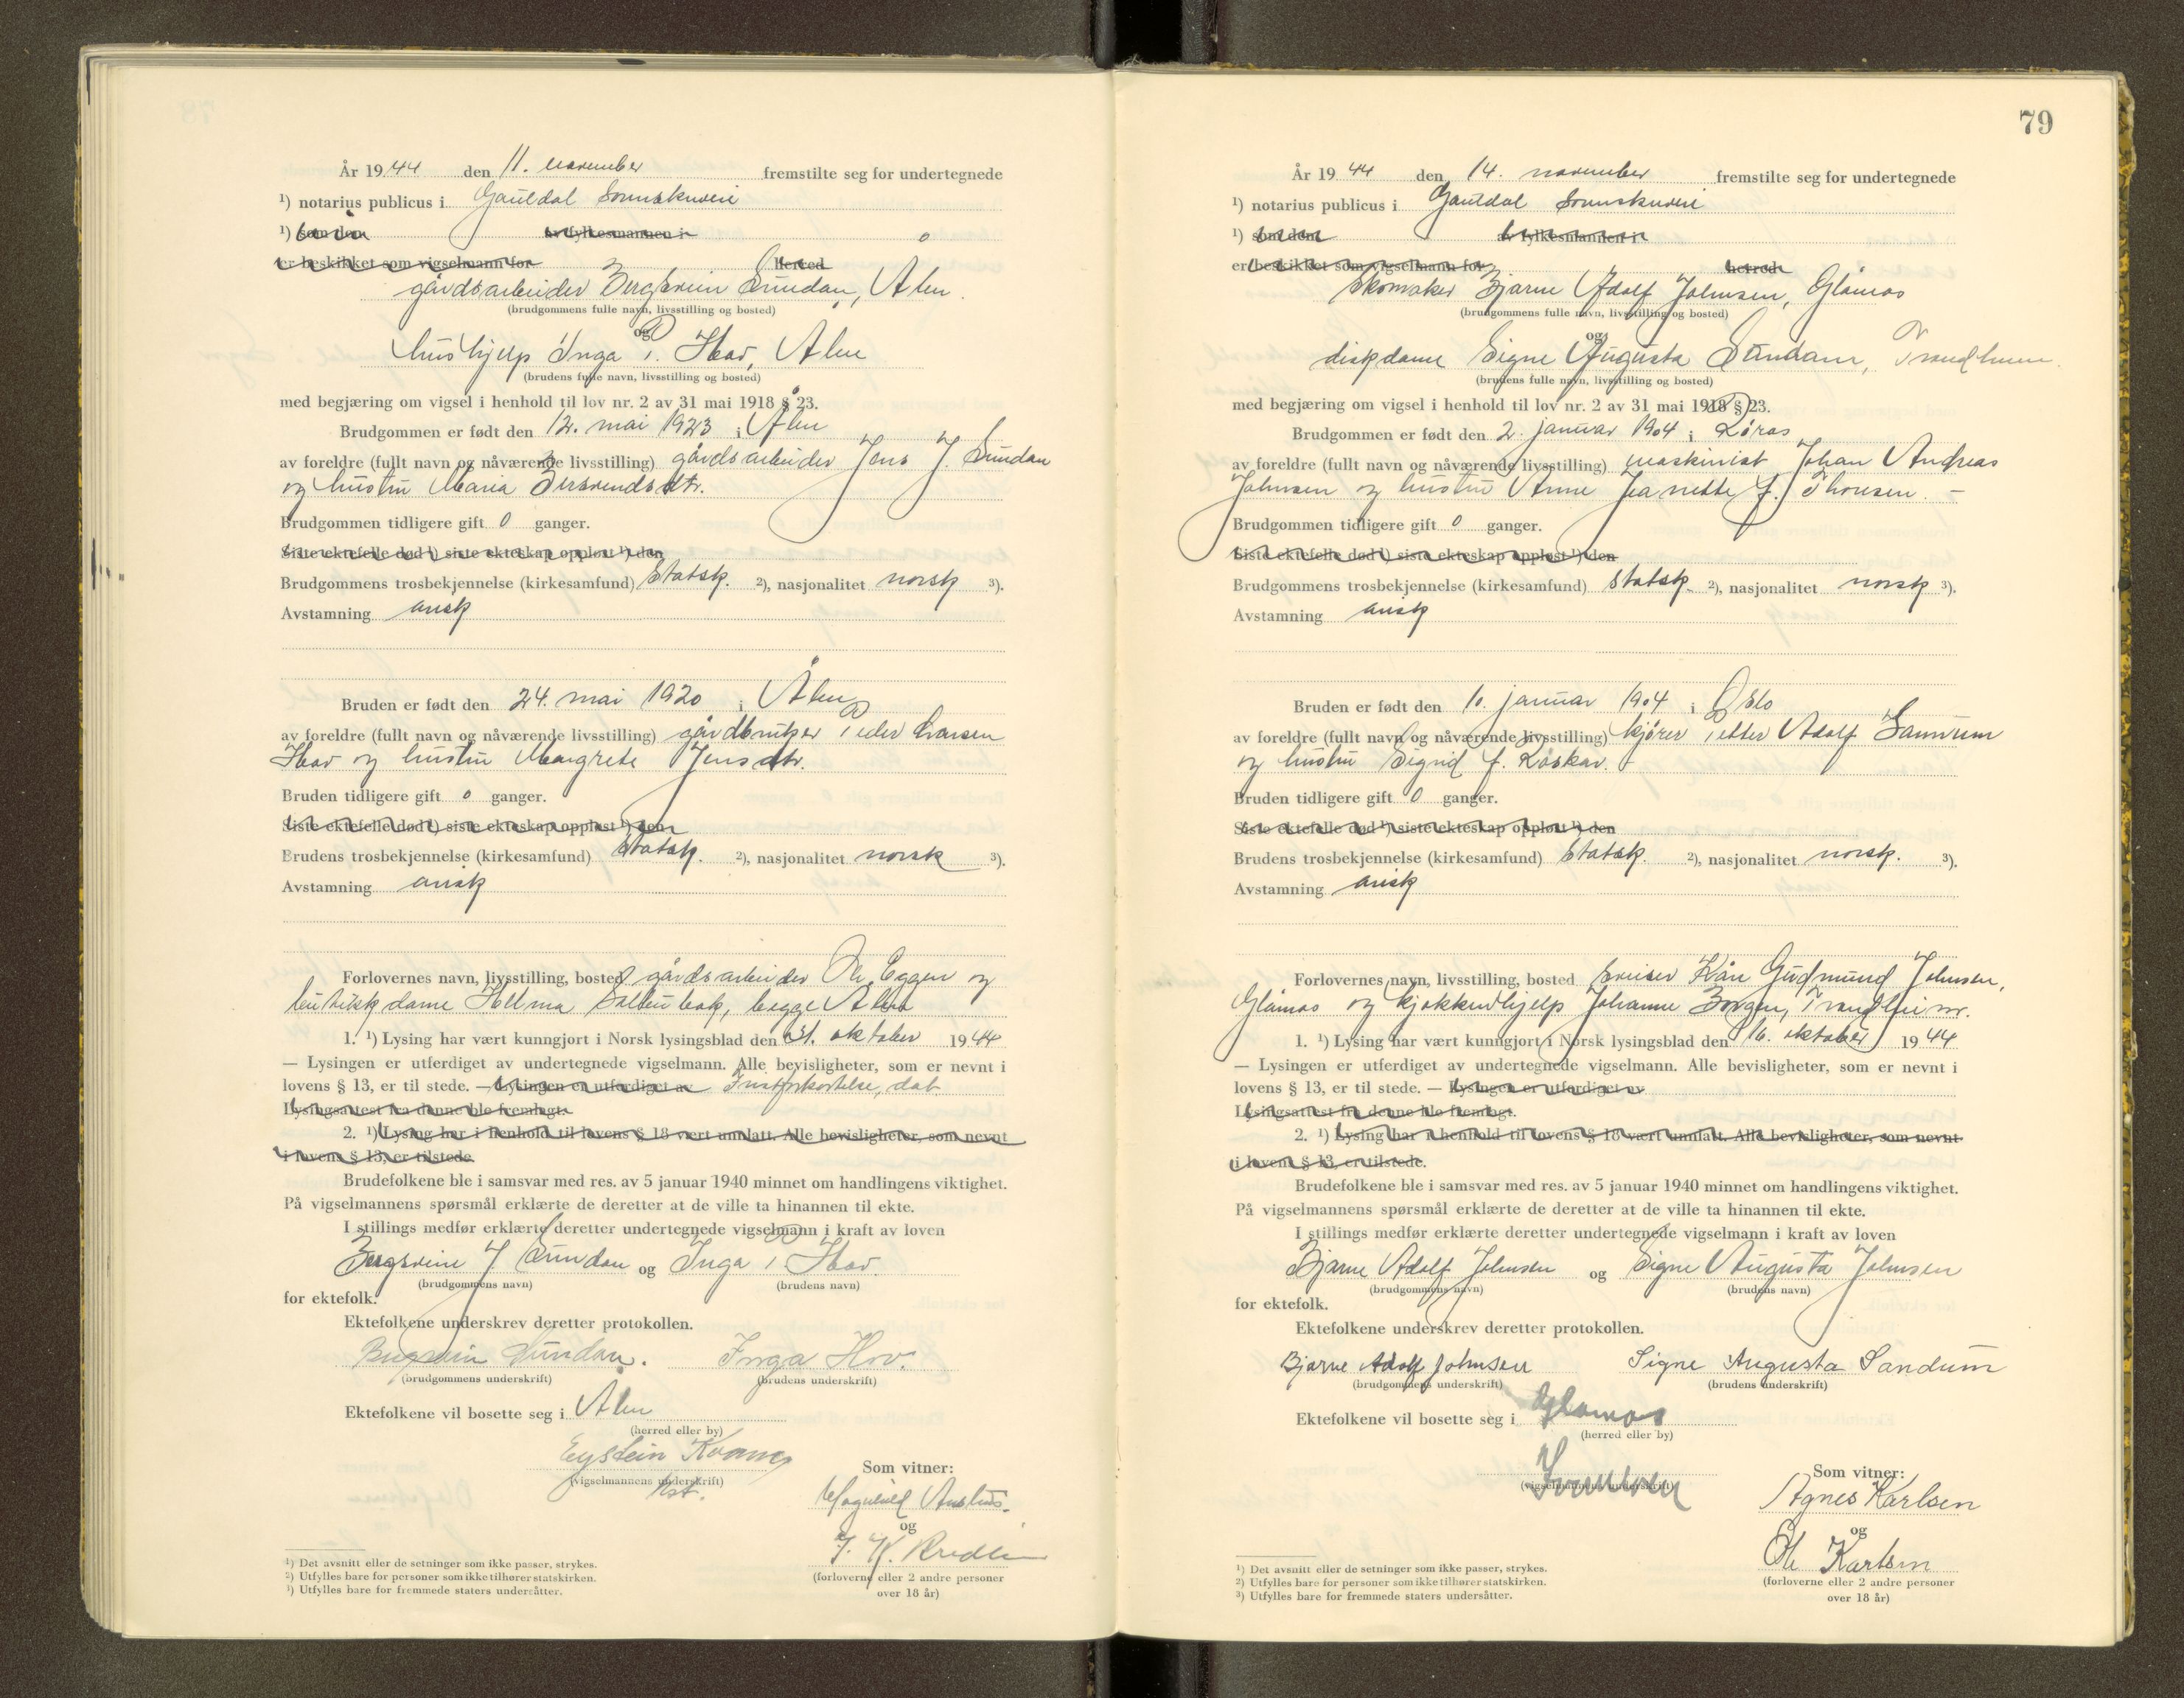 År 1944 den 11. november fremstilte seg for undertegnede
¹) notarius publicus i Gauldal Sorenskriveri
¹) som den av fylkesmannen i
er beskikket som vigselmann for Herred
gårdsarbeider Bergsvein Sundan, Ålen.
(brudgommens fulle navn, livsstilling og bosted)
og
hushjelp Inga P. Hov, Ålen
(brudens fulle navn, livsstilling og bosted)
med begjæring om vigsel i henhold til lov nr. 2 av 31 mai 1918 § 23.
Brudgommen er født den 12. mai 1923 i Ålen
av foreldre (fullt navn og nåværende livsstilling) gårdsarbeider Jens J. Sundan
og hustru Maria Bersvendsdtr.
Brudgommen tidligere gift 0 ganger.
Siste ektefelle død ¹) siste ekteskap oppløst ¹) den
Brudgommens trosbekjennelse (kirkesamfund) Statsk. ²), nasjonalitet norsk ³).
Avstamning arisk
Bruden er født den 24. mai 1920 i Ålen
av foreldre (fullt navn og nåværende livsstilling) gårdbruker Peder Larsen
Hov og hustru Margrete Jensdtr.
Bruden tidligere gift 0 ganger.
Siste ektefelle død ¹) siste ekteskap oppløst ¹) den
Brudens trosbekjennelse (kirkesamfund) Statsk. ²), nasjonalitet norsk ³).
Avstamning arisk
Forlovernes navn, livsstilling, bosted gårdsarbeider Ole Eggen og
butikkdame Helma begge Ålen
1. ¹) Lysing har vært kunngjort i Norsk lysingsblad den 31. oktober 1944
— Lysingen er utferdiget av undertegnede vigselmann. Alle bevisligheter, som er nevnt i
lovens § 13, er til stede. — Lysingen er utferdiget av
Lysingsattest fra denne ble fremlagt.
2. ¹) Lysing har i henhold til lovens § 18 vært unnlatt. Alle bevisligheter, som nevnt
i lovens § 13, er tilstede.
Brudefolkene ble i samsvar med res. av 5 januar 1940 minnet om handlingens viktighet.
På vigselmannens spørsmål erklærte de deretter at de ville ta hinannen til ekte.
I stillings medfør erklærte deretter undertegnede vigselmann i kraft av loven
Bergsvein J Sundan og Inga P Hov.
(brudgommens navn) (brudens navn)
for ektefolk.
Ektefolkene underskrev deretter protokollen.
Bergsvein Sundan. Inga Hov.
(brudgommens underskrift) (brudens underskrift)
Ektefolkene vil bosette seg i Ålen
(herred eller by)
Eystein
(vigselmannens underskrift)
Som vitner:
og
(forloverne eller 2 andre personer
over 18 år)
¹) Det avsnitt eller de setninger som ikke passer, strykes.
²) Utfylles bare for personer som ikke tilhører statskirken.
³) Utfylles bare for fremmede staters undersåtter.
79
År 1944 den 14. november fremstilte seg for undertegnede
¹) notarius publicus i Gauldal Sorenskriveri
¹) som den av fylkesmannen i
er beskikket som vigselmann for herred
Skomaker Bjarne Adolf Johnsen, Glåmos
(brudgommens fulle navn, livsstilling og bosted)
og
diskdame Signe Augusta Trondheim.
(brudens fulle navn, livsstilling og bosted)
med begjæring om vigsel i henhold til lov nr. 2 av 31 mai 1918 § 23.
Brudgommen er født den 2. januar 1904 i Røros
av foreldre (fullt navn og nåværende livsstilling) maskinist Johan Andreas
Johnsen og hustru Anne Jeanette f. Thonsen. —
Brudgommen tidligere gift 0 ganger.
Siste ektefelle død ¹) siste ekteskap oppløst ¹) den
Brudgommens trosbekjennelse (kirkesamfund) Statsk. ²), nasjonalitet norsk ³).
Avstamning arisk
Bruden er født den 10. januar 1904 i Oslo
av foreldre (fullt navn og nåværende livsstilling) kjører Petter Adolf
og hustru Sigrid f. Røskar. —
Bruden tidligere gift 0 ganger.
Siste ektefelle død ¹) siste ekteskap oppløst ¹) den
Brudens trosbekjennelse (kirkesamfund) Statsk. ²), nasjonalitet norsk. ³).
Avstamning arisk
Forlovernes navn, livsstilling, bosted Kåre Gudmund Johnsen,
Glåmos og kjøkkenhjelp Johanne Borgen, Trondheim.
1. ¹) Lysing har vært kunngjort i Norsk lysingsblad den 16. oktober 1944
— Lysingen er utferdiget av undertegnede vigselmann. Alle bevisligheter, som er nevnt i
lovens § 13, er til stede. — Lysingen er utferdiget av
Lysingsattest fra denne ble fremlagt.
2. ¹) Lysing har i henhold til lovens § 18 vært unnlatt. Alle bevisligheter, som nevnt
i lovens § 13, er tilstede.
Brudefolkene ble i samsvar med res. av 5 januar 1940 minnet om handlingens viktighet.
På vigselmannens spørsmål erklærte de deretter at de ville ta hinannen til ekte.
I stillings medfør erklærte deretter undertegnede vigselmann i kraft av loven
Bjarne Adolf Johnsen og Signe Augusta Johnsen
(brudgommens navn) (brudens navn)
for ektefolk.
Ektefolkene underskrev deretter protokollen.
Bjarne Adolf Johnsen Signe Augusta Sandum
(brudgommens underskrift) (brudens underskrift)
Ektefolkene vil bosette seg i Glåmos
(herred eller by)
(vigselmannens underskrift)
Som vitner:
Agnes Karlsen
og
Ole Karlsen
(forloverne eller 2 andre personer
over 18 år)
¹) Det avsnitt eller de setninger som ikke passer, strykes.
²) Utfylles bare for personer som ikke tilhører statskirken.
³) Utfylles bare for fremmede staters undersåtter.